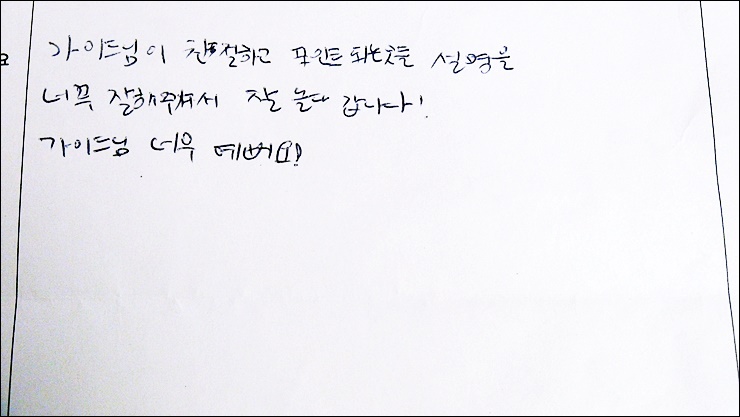 가이드님이 친절하고 포인트 되는 것들 설명을
너무 잘해주셔서 잘 놀다 갑니다!
가이드님 너무 예뻐요!